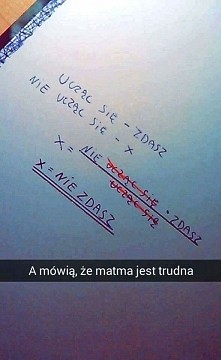 UCZĄC SIĘ - ZDASZ
NIE UCZĄC SIĘ - X
X = NIE UCZĄC SIĘ · ZDASZ
UCZĄC SIĘ
X = NIE ZDASZ
A mówią, że matma jest trudna